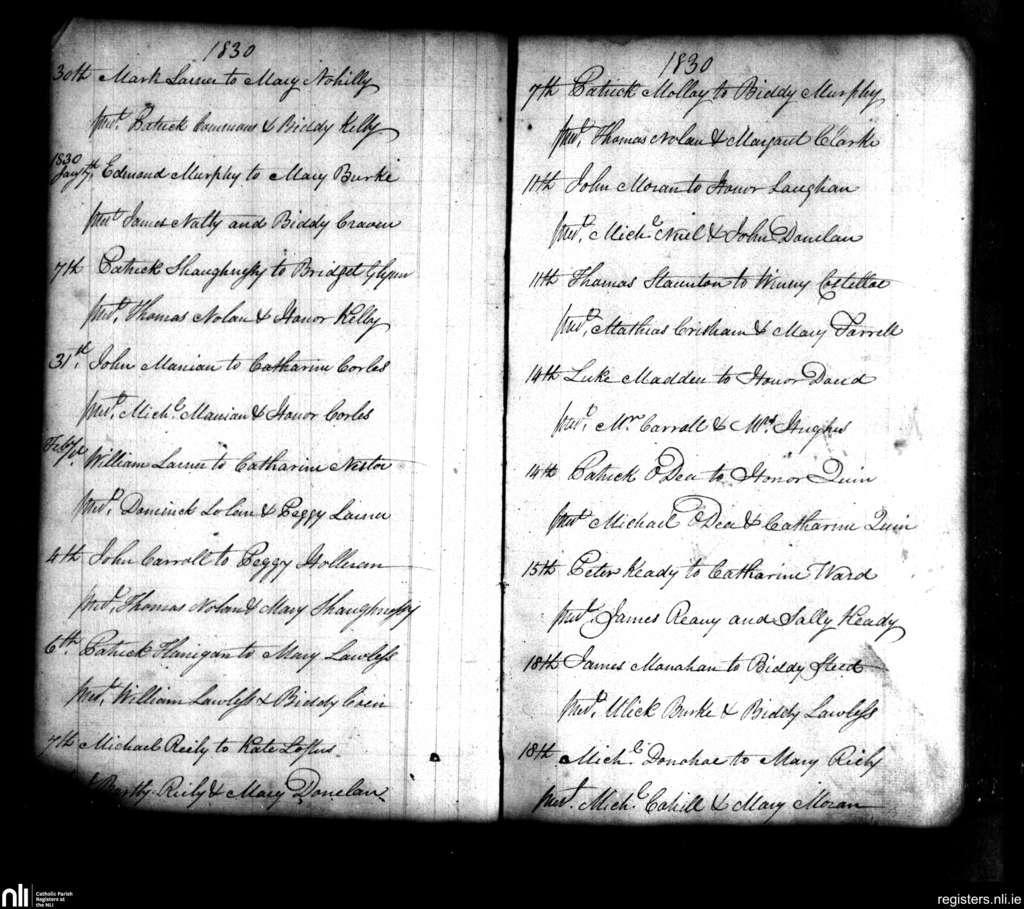 1830
30th Mark Larner to Mary Nohilly
prest. Patrick Commons & Biddy Kelly
1830
Jany 7th. Edmond Murphy to Mary Burke
prest James Natty and Biddy Craven
7th Patrick Shaughnessy to Bridget Glynn
prest. Thomas Nolan & Honor Kelly
31st. John Manian to Catharine Corles
prest. Michl. Manian & Honor Corles
Feby 1st. William Larner to Catharine Nestor
prest. Dominick & Peggy Larner
4th John Carroll to Peggy Holleran
prest. Thomas Nolan & Mary Shaughnessy
6th. Patrick Flanigan to Mary Lawless
prest. William Lawless & Biddy Coen
7th Michael Reily to Kate Loftus
Bartly Riely & Mary Donelan
1830
7th Patrick Molloy to Biddy Murphy
prest. Thomas Nolan & Margaret Clarke
11th John Moran to Honor Laughan
prest. Michl. Niel & John Donelan
11th Thomas Staunton to Winny Costelloe
prest. Mathias Crisham & Mary Farrell
14th Luke Madden to Honor Daud
prest. Mr. Carroll & Mrs. Hughes
14th Patrick O'Dea to Honor Quin
prest Michael O'Dea & Catharine Quin
15th Peter Keady to Catharine Ward
prest. James Reany and Sally Keady
18th James Monahan to Biddy
prest. Ulick Burke & Biddy Lawless
18th Michl. Donohoe to Mary Riely
prest. Michl. Cahill & Mary Moran
nli
Catholic Parish
Registers at
the NLI
registers.nli.ie